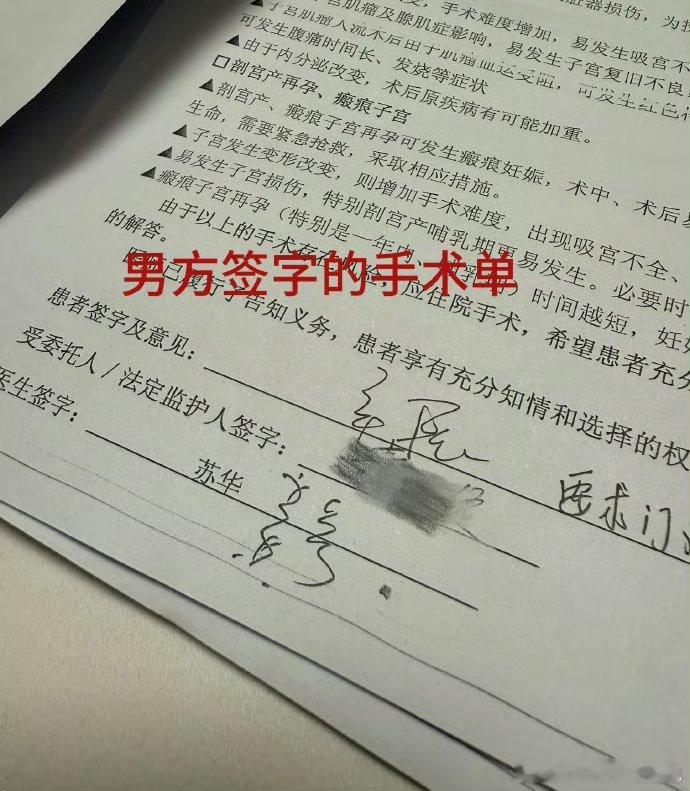 脏器损伤，为
，手术难度增加，易发生吸宫不
▲子宫肌瘤及腺肌症影响，易发生子宫复旧不良
▲子宫肌瘤人流术后由于肌瘤血运受阻，可发生红色
可发生腹痛时间长、发烧等症状
▲由于内分泌改变，术后原疾病有可能加重。
□剖宫产再孕、瘢痕子宫
▲剖宫产、瘢痕子宫再孕可发生瘢痕妊娠，术中、术后
生命，需要紧急抢救，采取相应措施。
▲子宫发生变形改变，则增加手术难度，出现吸宫不全、
▲易发生子宫损伤，特别剖宫产哺乳期更易发生。必要时
▲瘢痕子宫再孕（特别是一年内、）时间越短，妊
由于以上的手术存在风险，应住院手术，希望患者充分
的解答。
已履行了告知义务，患者享有充分知情和选择的权
男方签字的手术单
患者签字及意见：
要求门
受委托人/法定监护人签字：
医生签字：
苏华